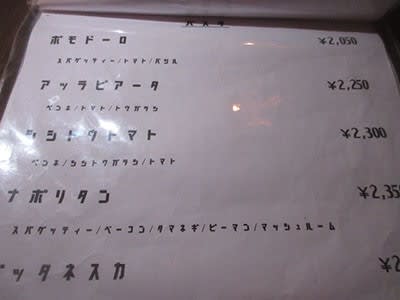 パスタ
ポモドーロ ¥2,050
スパゲッティー/トマト/バジル
アッラビアータ ¥2,250
ペンネ/トマト/トウガラシ
シシトウトマト ¥2,300
ペンネ/シシトウガラシ/トマト
ナポリタン ¥2,35
スパゲッティー/ベーコン/タマネギ/ピーマン/マッシュルーム
ッタネスカ ¥2